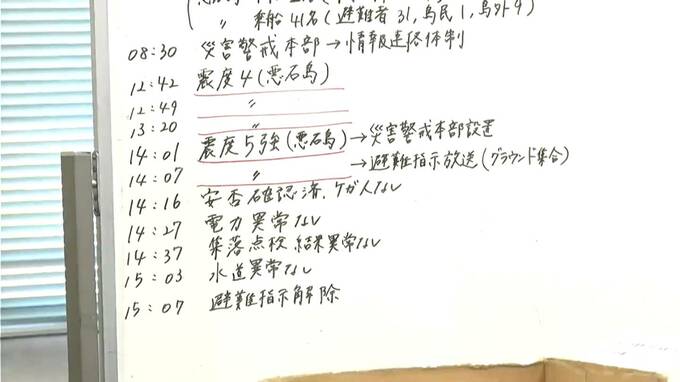 〃 乗船41名(避難者31,島民1,島外9)
08:30 災害警戒本部→情報連絡体制
12:42 震度4(悪石島)
12:49 〃
13:20 〃
14:01 震度5強(悪石島)→災害警戒本部設置
→避難指示放送(グラウンド集合)
14:07 〃
14:16 安否確認済,ケガ人なし
14:27 電力異常なし
14:37 集落点検結果異常なし
15:03 水道異常なし
15:07 避難指示解除